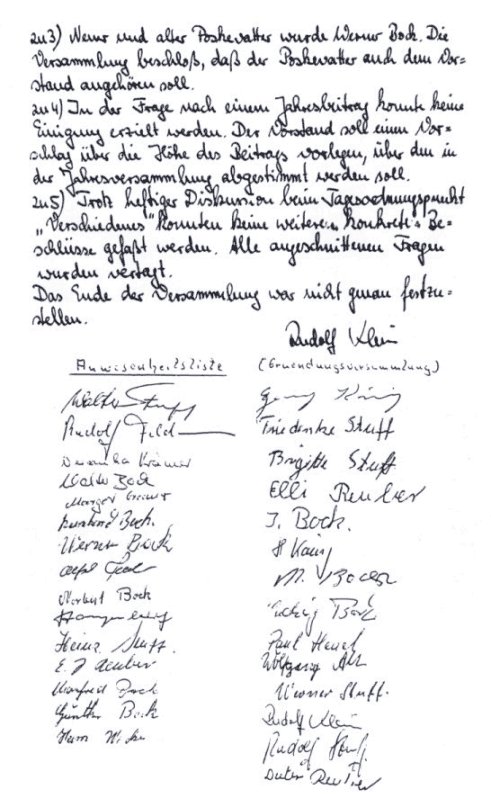 zu3) Neuer und alter Poskevatter wurde Werner Bock. Die
Versammlung beschloß, daß der Poskevatter auch dem Vor=
stand angehören soll.
zu4) In der Frage nach einem Jahresbeitrag konnte keine
Einigung erzielt werden. Der Vorstand soll einen Vor=
schlag über die Höhe des Beitrags vorlegen, über den in
der Jahresversammlung abgestimmt werden soll.
zu5) Trotz heftiger Diskussion beim Tagesordnungspunkt
„Verschiedenes" konnten keine weiteren konkreten Be=
schlüsse gefaßt werden. Alle angeschnittenen Fragen
wurden vertagt.
Das Ende der Versammlung war nicht genau festzu=
stellen.
Rudolf Klein
Anwesenheitsliste (Gruendungsversammlung)
Walter Stuff
Rudolf
Krämer
Walter Bock
Margot
Bock
Werner Bock
Norbert Bock
Heinz Stuff
E.
Manfred Bock
Günther Bock
Georg König
Friedenke Stuff
Brigitte Stuff
Elli Reuber
J. Bock.
M. Bock
Ludwig Bock
Paul
Wolfgang
Werner Stuff.
Rudolf Klein
Rudolf
Dieter Reuber